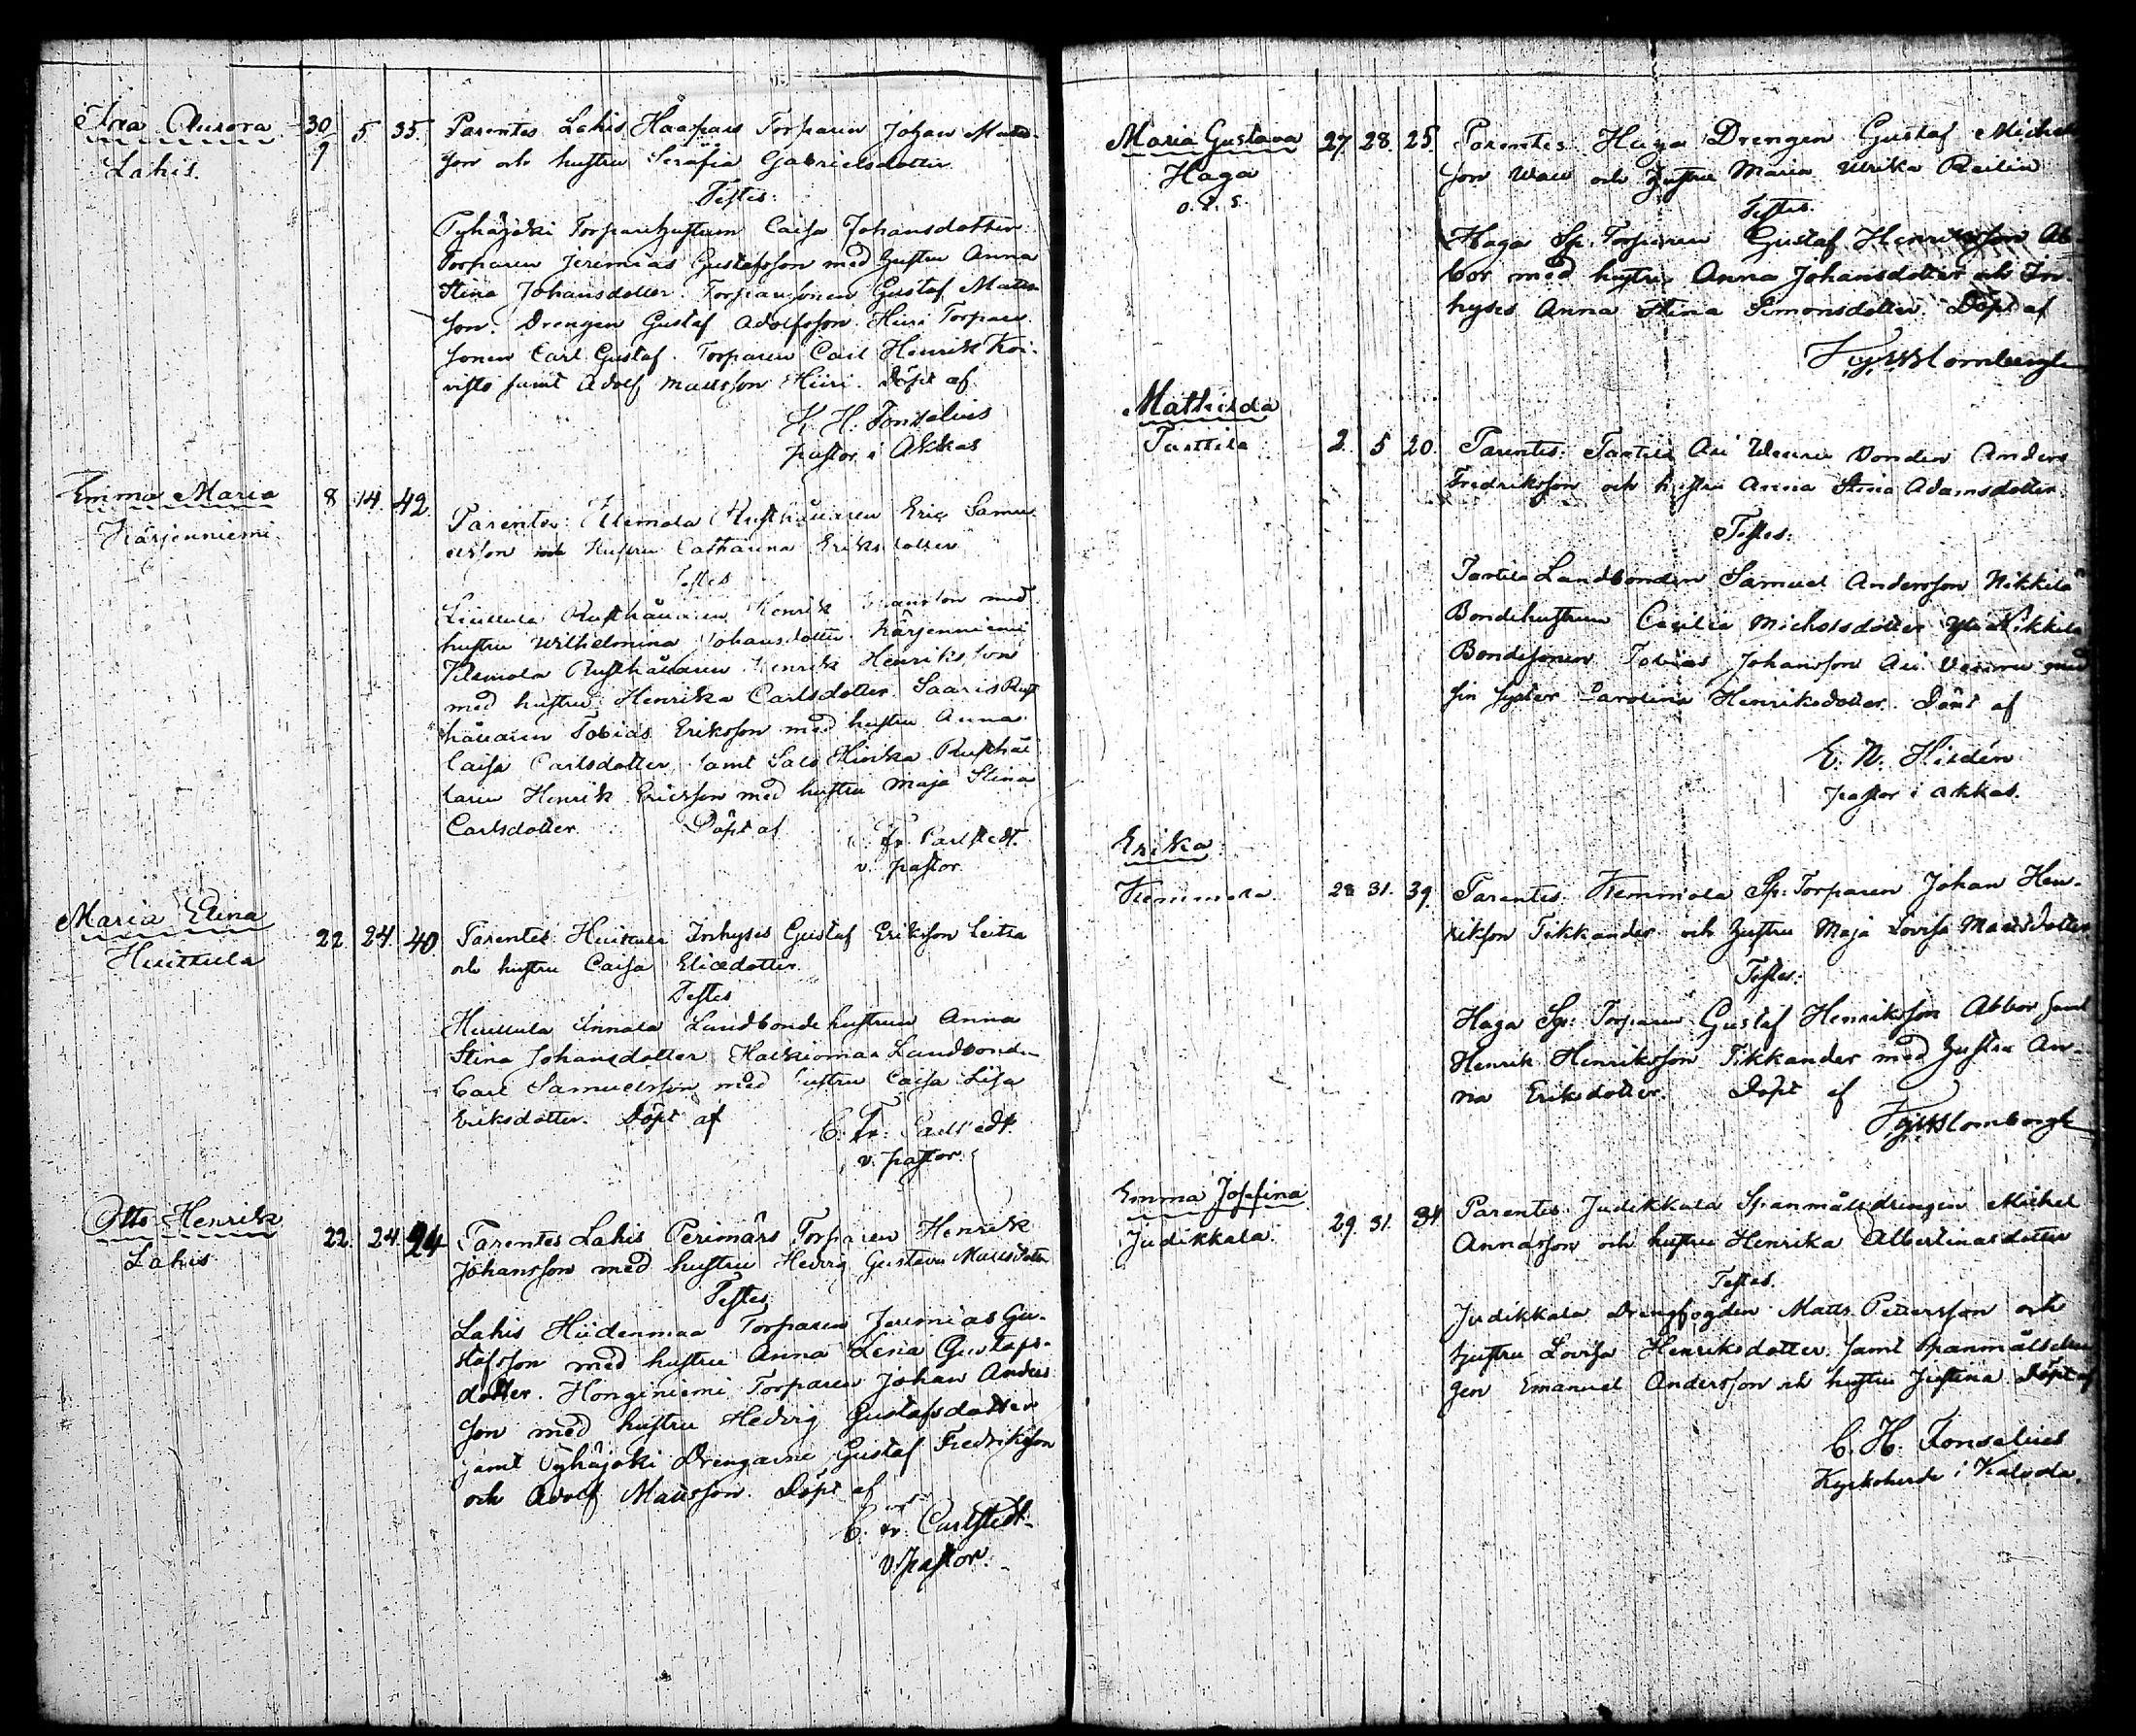 Aurora 30/9 5 35. Parentes Lahis Haapais Torparen Johan Matts-
Lahis. son och hustru Serafia Gabrielsdotter
Testes:
Pyhäjoki Torparehustrun Caisa Johansdotter
Torparen Jeremias Gustafsson med hustru Anna
Stina Johansdotter. Torparsonen Gustaf Matts-
son. Drengen Gustaf Adolfsson. Hiiri Torpare
sonen Carl Gustaf. Torparen Carl Henrik Koi-
visto samt Adolf Mattsson Hiiri. Döpt af
K. H. Fonselius
pastor i Akkas
Emma Maria 8 14. 42.
Kärjenniemi
Parentes: Rusthållaren Eric Samu-
elsson och Hustru Catharina Eriksdotter
Testes
Rusthållaren Henrik med
hustru Wilhelmina Johansdotter. Kärjenniemi
Rusthållaren Henrik Henriksson
med hustru Henrika Carlsdotter. Saaris Rust
hållaren Tobias Eriksson med hustru Anna
Caisa Carlsdotter, samt Rusthål
laren Henrik Ericsson med hustru Maja Stina
Carlsdotter. Döpt af
Fr. Carlstedt.
v. pastor
Maria Elina
Huittula 22 24. 40. Parentes Huittula Inhyses Gustaf Eriksson
och hustru Caisa Eliædotter.
Testes
Huittula Annala Landbondehustrun Anna
Stina Johansdotter, Landbonden
Carl Samuelsson med hustru Caisa Lisa
Eriksdotter. Döpt af
C. Fr. Carlstedt.
v. pastor.
Otto Henrik
Lahis 22. 24. 24 Parentes Lahis Perimärs Torparen Henrik
Johansson med hustru Hedvig Gustava Mattsdotter
Testes
Lahis Hiidenmaa Torparen Jeremias Gu-
stafsson med hustru Anna Lena Gustafs-
dotter. Honginiemi Torparen Johan Anders
son med hustru Hedvig Gustafsdotter
samt Pyhäjoki Drengarne Gustaf Fredriksson
och Adolf Mattsson. Döpt af
C. Fr. Carlstedt
v. pastor.
Maria Gustava 27. 28. 25. Parentes: Haga Drengen Gustaf Michels
Haga son och hustru Maria Ulrika
o. ä. s.
Testes.
Haga Sp. Torparen Gustaf Henriksson Ab-
bor med hustru Anna Johansdotter och In-
hyses Anna Stina Simonsdotter. Döpt af
Mathilda
2. 5 20. Parentes: Bonden Anders
Fredriksson och hustru Anna Stina Adamsdotter.
Testes:
Landbonden Samuel Andersson Nikkilä
Bondehustrun Cecilia Michelsdotter Nikkilä
Bondesonen Tobias Johansson med
sin syster Carolina Henriksdotter. Döpt af
E. N. Hildén.
pastor i Akkas.
Erika
28 31. 39. Parentes. Sp. Torparen Johan Hen-
riksson Tikkander och hustru Maja Lovisa Mattsdotter
Testes:
Haga Sp. Torparen Gustaf Henriksson Abbor samt
Henrik Henriksson Tikkander med hustru An-
na Eriksdotter. Döpt af
Emma Josefina
Judikkala. 29. 31. 34 Parentes Judikkala Spanmålsdrengen Michel
Annasson och hustru Henrika Albertinasdotter
Testes.
Judikkala Drengfogden Matts Pettersson och
hustru Lovisa Henriksdotter. samt Spanmålsdren
gen Emanuel Andersson och hustru Justina. Döpt af
C. H. Fonselius
Kyrkoherde i Kalvola.